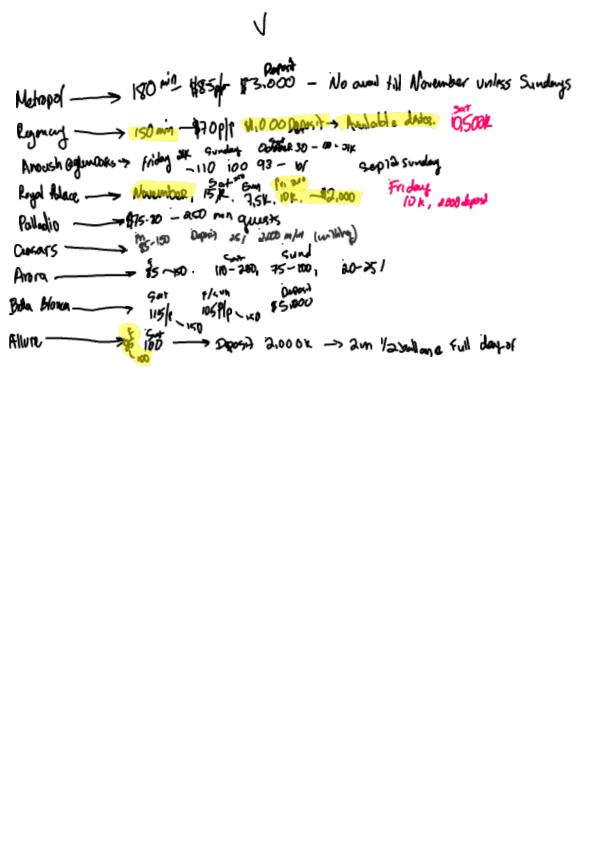 V
Metropol → 180 min - $85p/p $3,000 Deposit - No avail till November unless Sundays
Regency → 150 min → $70 p/p $1,000 Deposit → Available dates. Sat 10,500k
Anoush @ glenoaks → Friday Sunday 30 - 110 100 93 - Sep 12 Sunday
Royal Palace → November, Sat 15k. 7,5k. Fri 10k. - $2,000 Friday 10k, 2,000 deposit
Palladio → $75-80 - 250 min guests
Caesars → 85-150 Deposit 25%
Arora → 85 - 150. Sat 110-200, Sund 75-100, 20-25%
Bella Blanca → Sat 115/p - 150 F/Sun 105P/p - 150 Deposit $5,000
Allure → F 85 - 100 Sat 100 → Deposit 2,000k → 1/2 Full day of